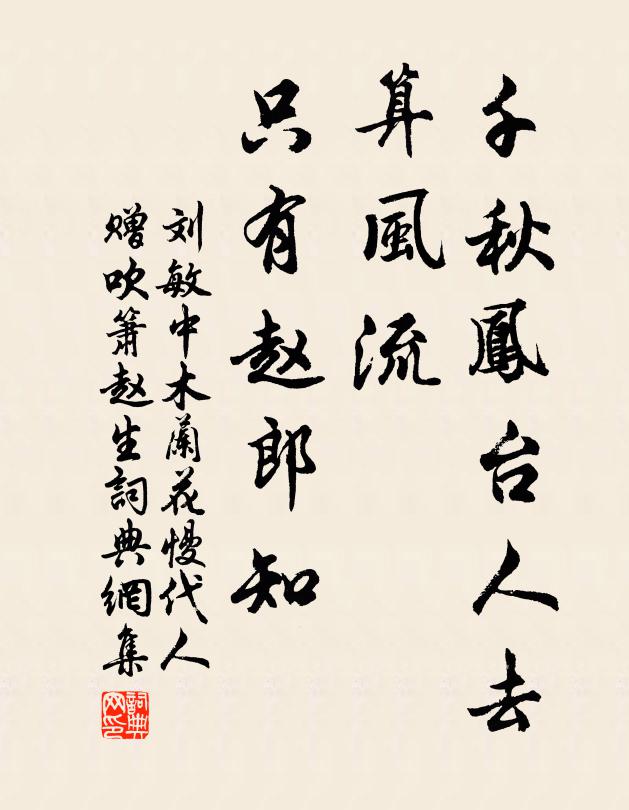 千秋鳳台人去
算風流
只有赵郎知
刘敏中木蘭花慢代人
赠吹箫赵生詞典網集
詞典网印